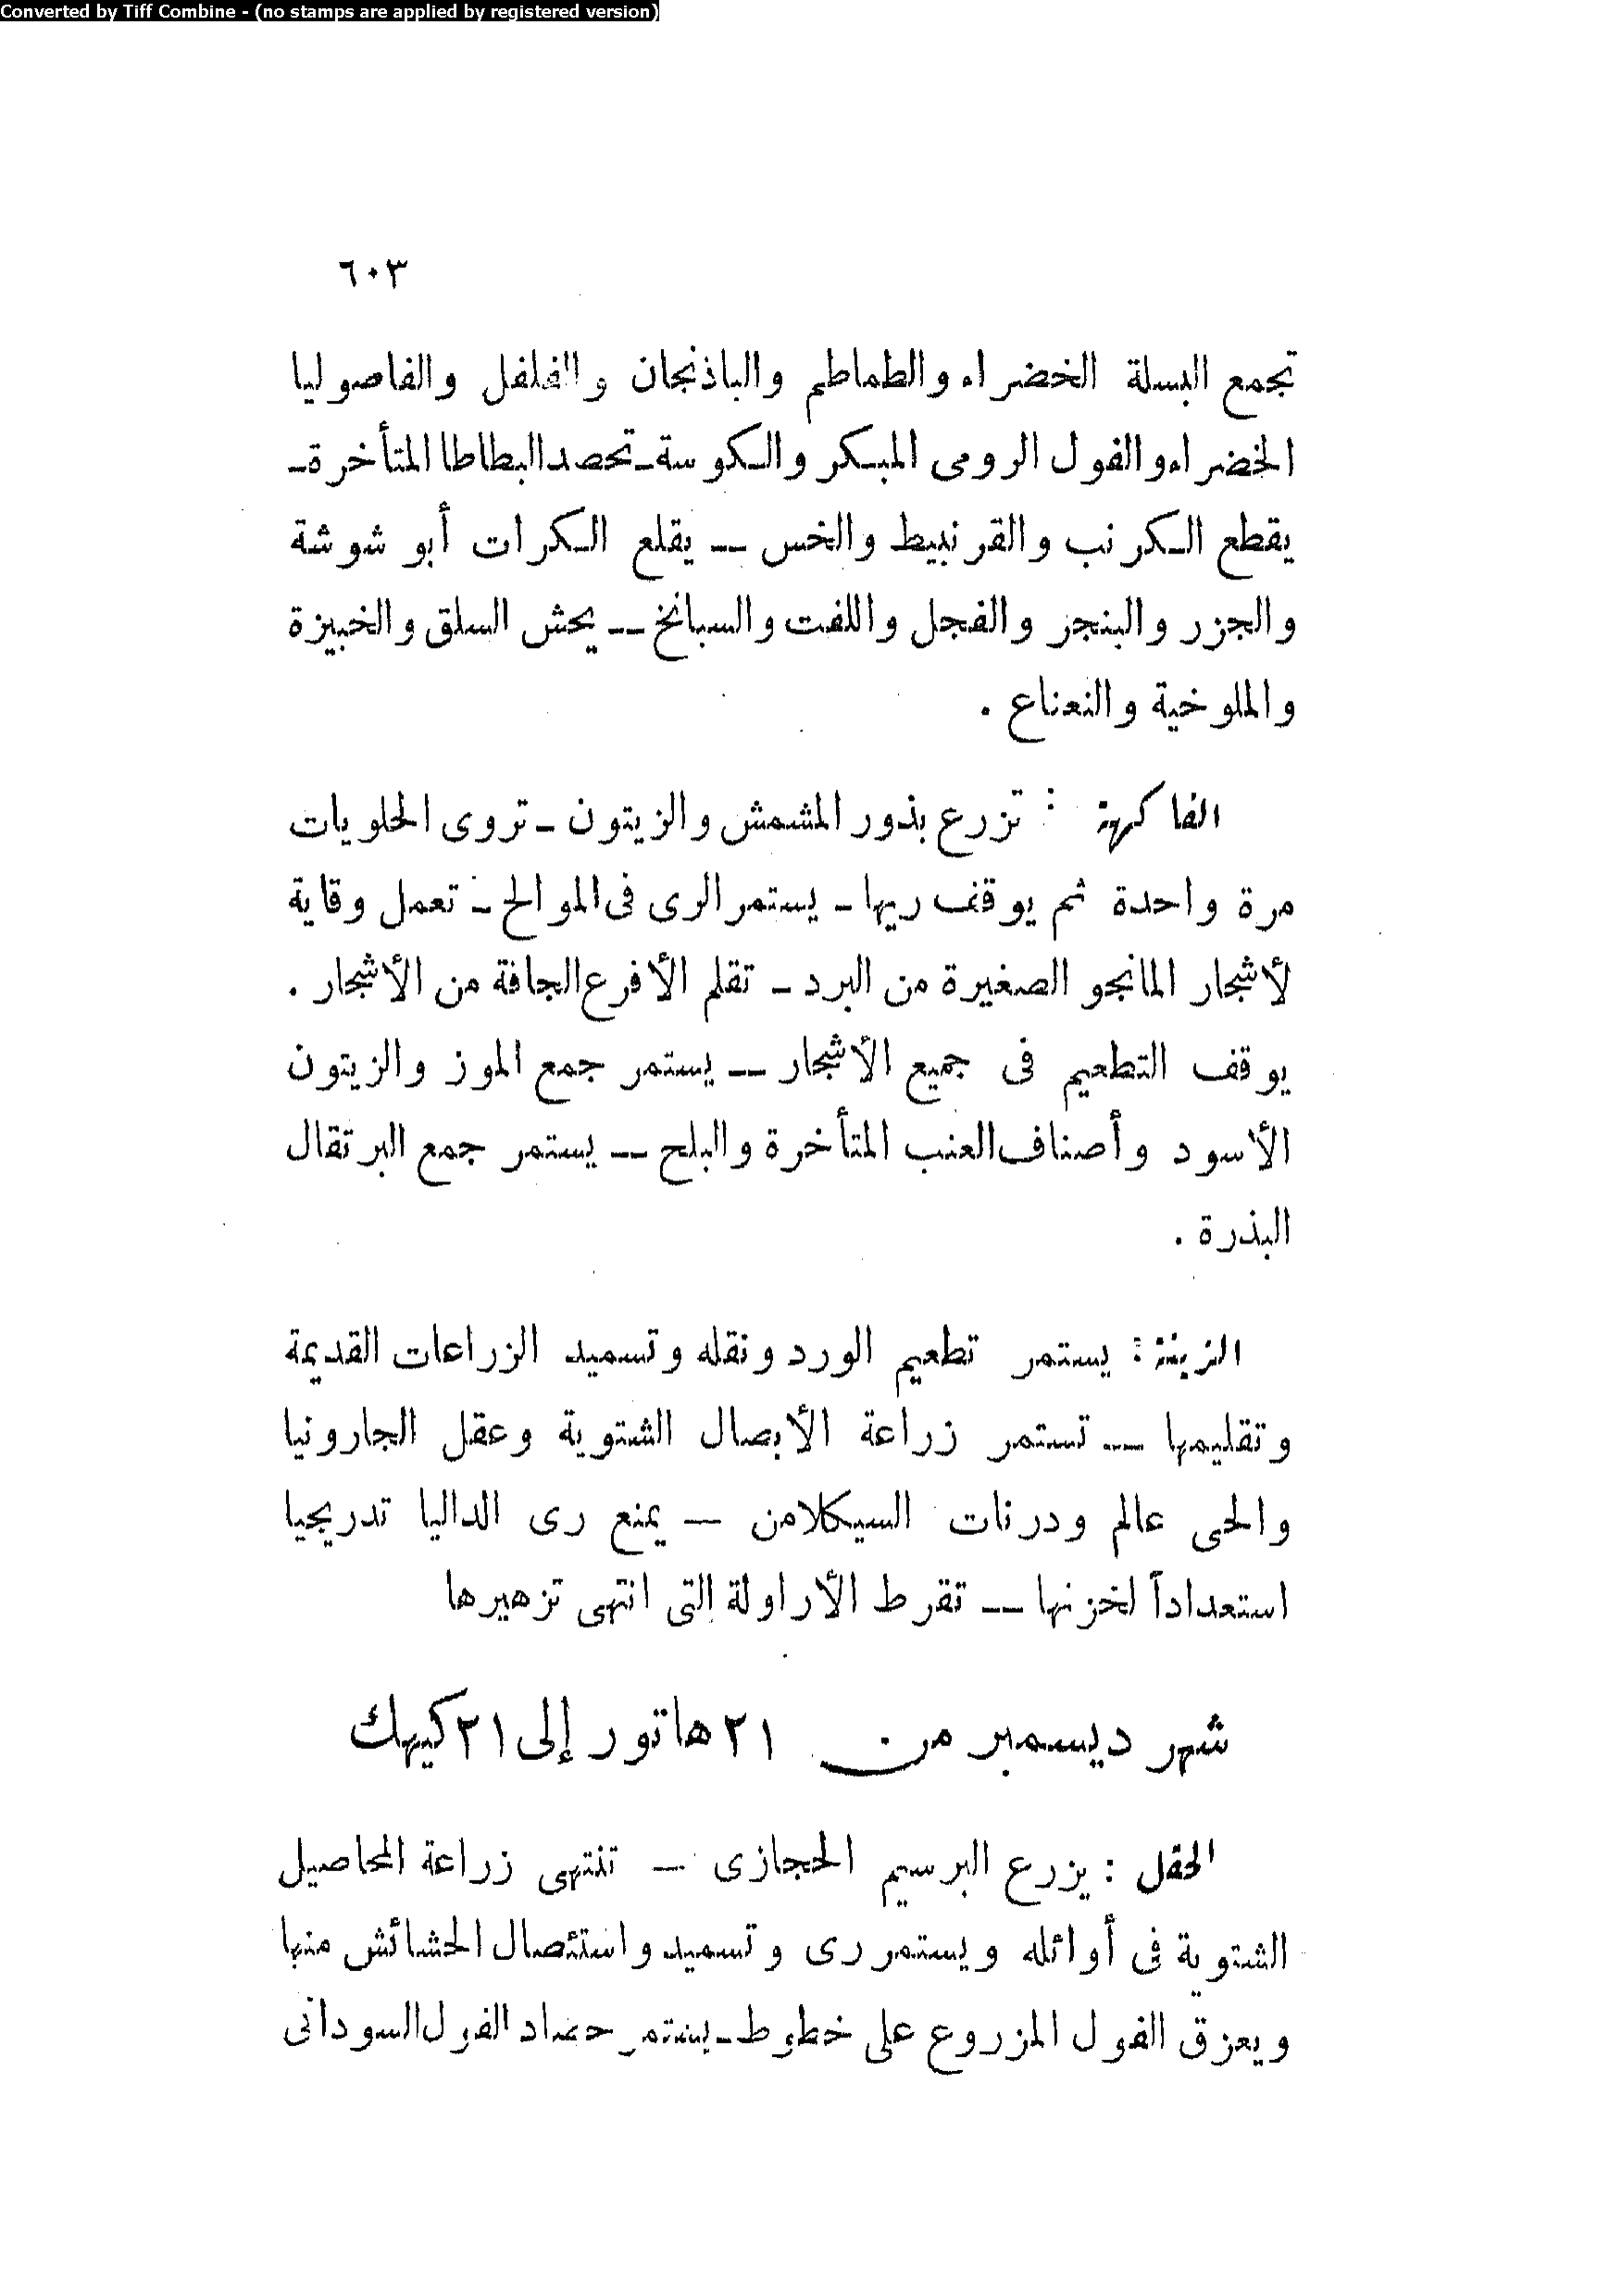 Converted by Tiff Combine - (no stamps are applied by registered version)
٦٠٣
تجمع البسلة الخضراء والطماطم والباذنجان والفلفل والفاصوليا
الخضراء والفول الرومى المبكر والكوسة ـ تحصد البطاطا المتأخرة ـ
يقطع الكرنب والقرنبيط والخس ـ يقلع الكرات أبو شوشة
والجزر والبنجر والفجل واللفت والسبانخ ـ يحش السلق والخبيزة
والملوخية والنعناع .
الفاكهة : تزرع بذور المشمش والزيتون ـ تروى الحلويات
مرة واحدة ثم يوقف ريها ـ يستمر الرى فى الموالح ـ تعمل وقاية
لأشجار المانجو الصغيرة من البرد ـ تقلم الأفرع الجافة من الأشجار .
يوقف التطعيم فى جميع الأشجار ـ يستمر جمع الموز والزيتون
الأسود وأصناف العنب المتأخرة والبلح ـ يستمر جمع البرتقال
البذرة .
الزينة : يستمر تطعيم الورد ونقله وتسميد الزراعات القديمة
وتقليمها ـ تستمر زراعة الأبصال الشتوية وعقل الجارونيا
والحى عالم ودرنات السيكلامن ـ يمنع رى الداليا تدريجيا
استعداداً لخزنها ـ تقرط الأراولة التى انتهى تزهيرها
شهر ديسمبر من ٢١ هاتور إلى ٢١ كيهك
الحقل : يزرع البرسيم الحجازى ـ تنتهى زراعة المحاصيل
الشتوية فى أوائله ويستمر رى وتسميد واستئصال الحشائش منها
ويعزق الفول المزروع على خطوط ـ يستمر حصاد الفول السودانى